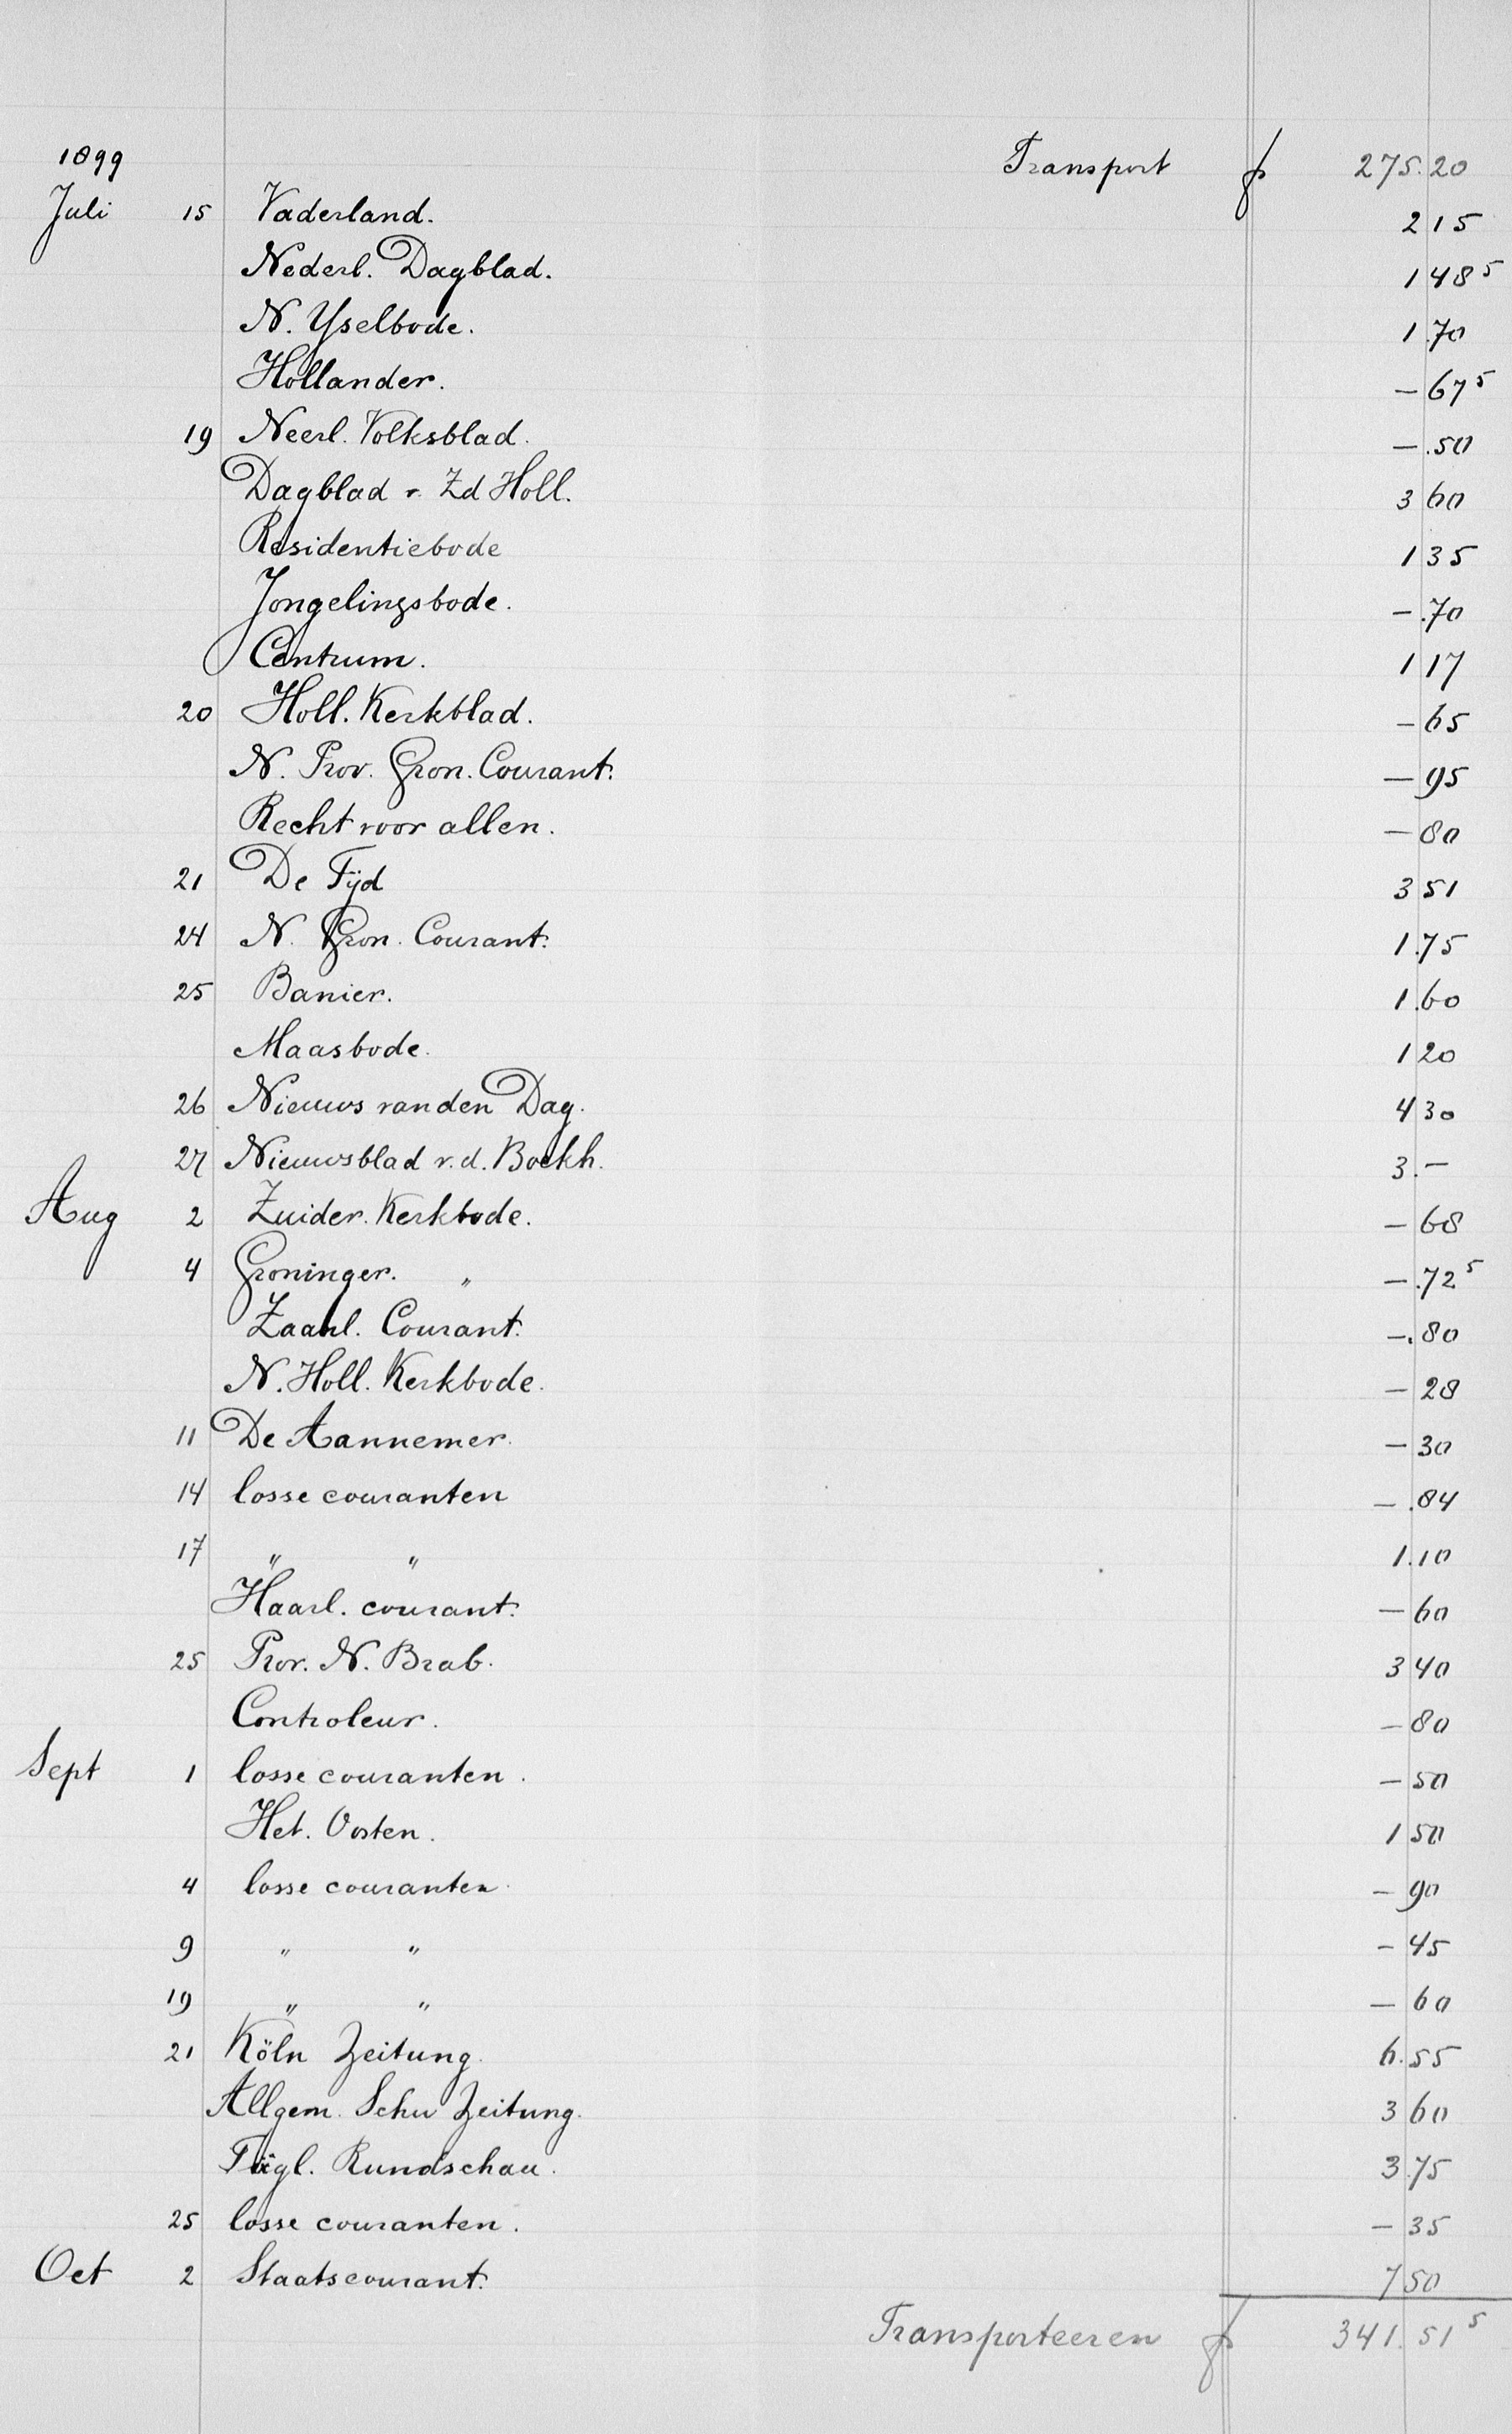 1899 Transport f 275.20
Juli 15 Vaderland. 2 15
Nederl. Dagblad. 1 48⁵
N. Yselbode. 1.70
Hollander. — 67⁵
19 Neerl. Volksblad. —.50
Dagblad v. Zd Holl. 3 60
Residentiebode 1 35
Jongelingsbode. —.70
Centrum. 1 17
20 Holl. Kerkblad. — 65
N. Prov. Gron. Courant. — 95
Recht voor allen. — 80
21 De Tijd 3 51
24 N. Gron. Courant. 1.75
25 Banier. 1.60
Maasbode. 1 20
26 Nieuws van den Dag. 4 30
27 Nieuwsblad v. d. Boekh. 3.—
Aug 2 Zuider. Kerkbode. — 68
4 Groninger. " —.72⁵
Zaanl. Courant. —.80
N. Holl. Kerkbode. — 28
11 De Aannemer. — 30
14 losse couranten —.84
17 " " 1.10
Haarl. courant. — 60
25 Prov. N. Brab. 3 40
Controleur. — 80
Sept 1 losse couranten. — 50
Het. Oosten. 1 50
4 losse couranten. — 90
9 " " — 45
19 " " — 60
21 Köln Zeitung. 6.55
Allgem. Schw Zeitung. 3 60
Tägl. Rundschau. 3.75
25 losse couranten. — 35
Oct 2 Staatscourant. 7 50
Transporteeren f 341.51⁵